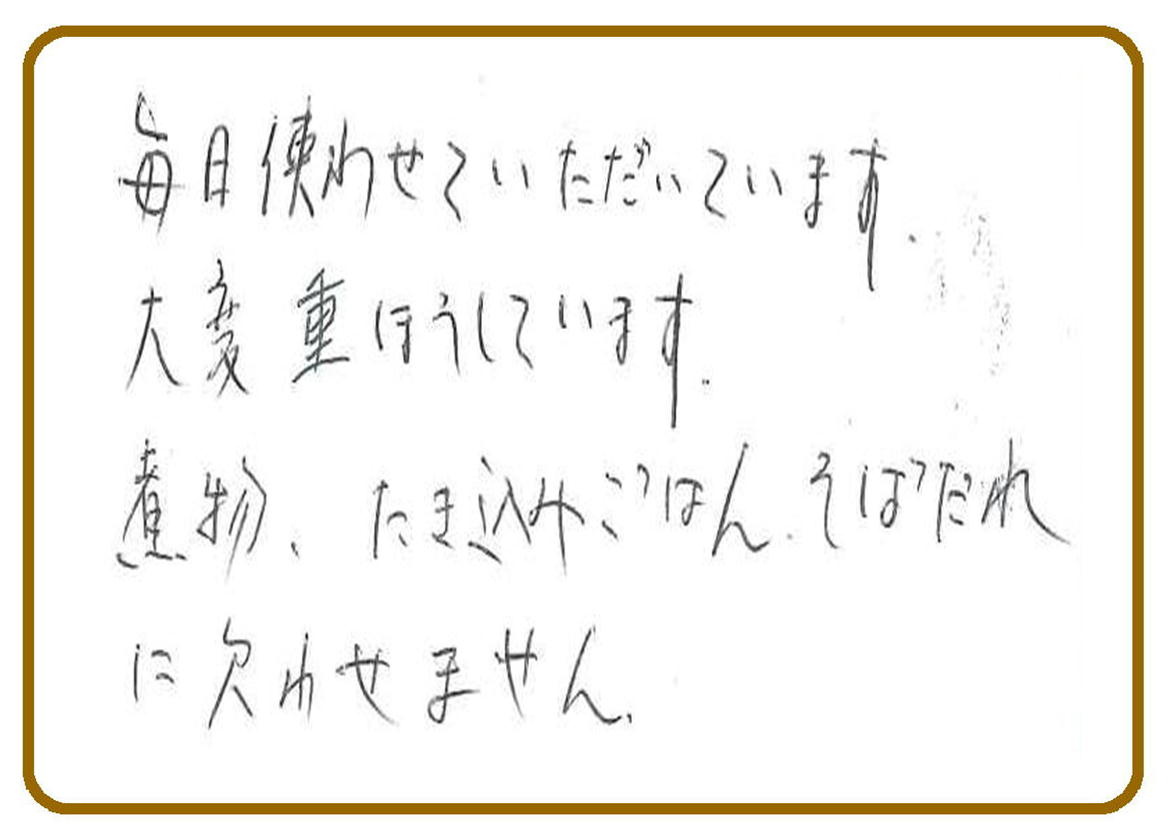 毎日使わせていただいています.
大変重ほうしています.
煮物、たき込みごはん、そばだれ
に欠わせません.